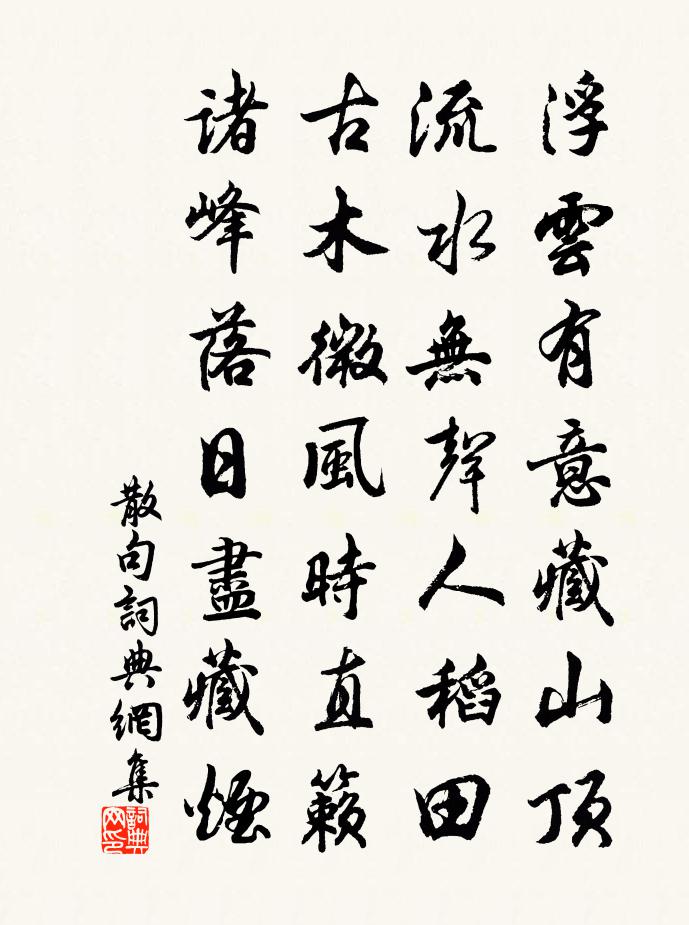 浮雲有意藏山頂
流水無聲入稻田
古木微風時直籟
諸峰落日盡藏煙
散句詞典網集
詞典网印